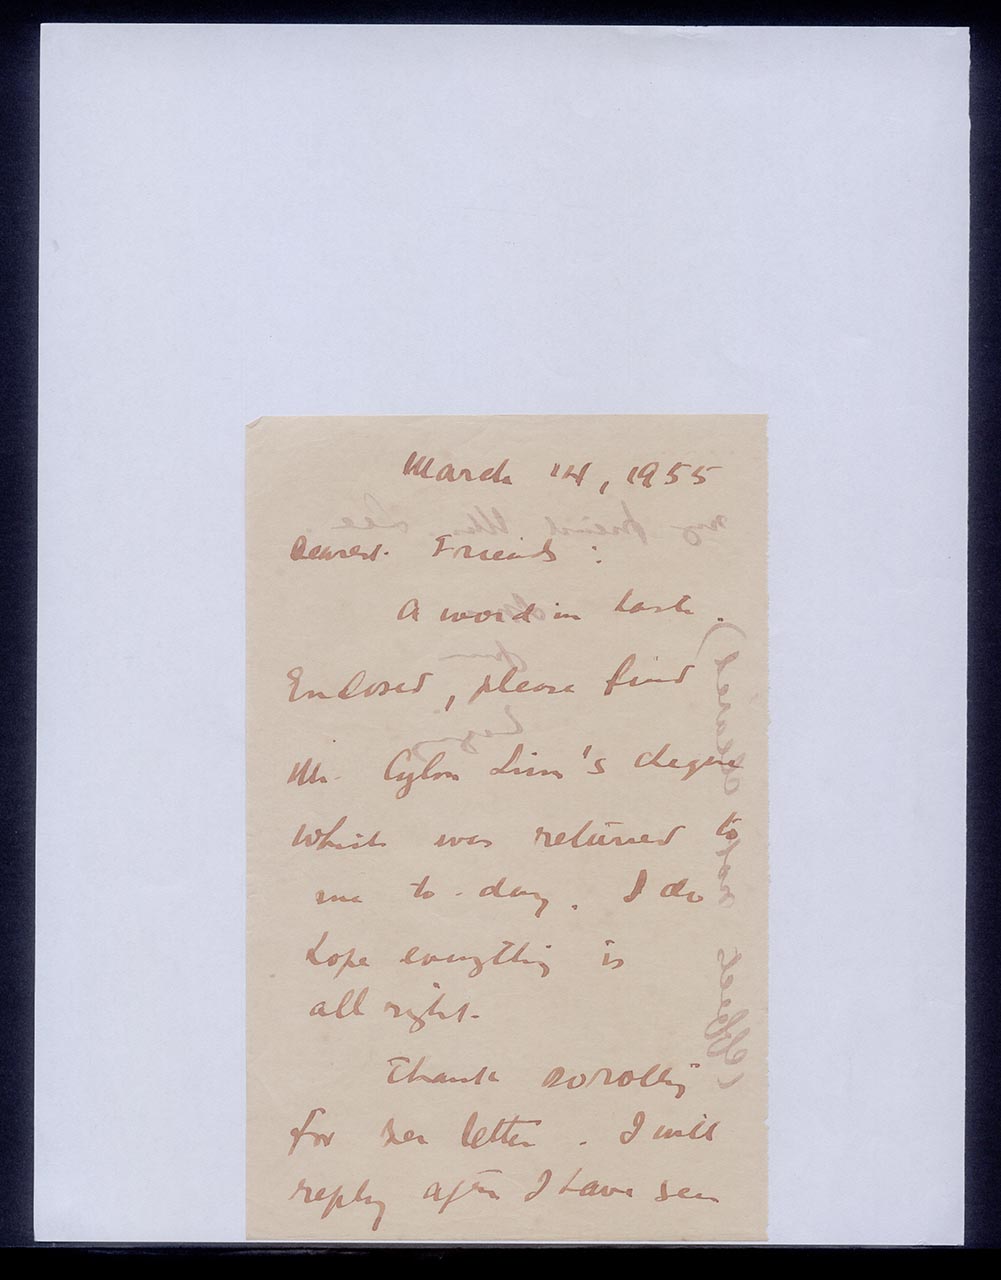 March 14, 1955
Dearest Friends :
A word in haste.
Enclosed, please find
Mr. Cylon Lim's cheque
which was returned to
me to-day. I do
hope everything is
all right.
Thank Dorothy
for her letter. I will
reply after I have seen
my friend Mrs. Lee.